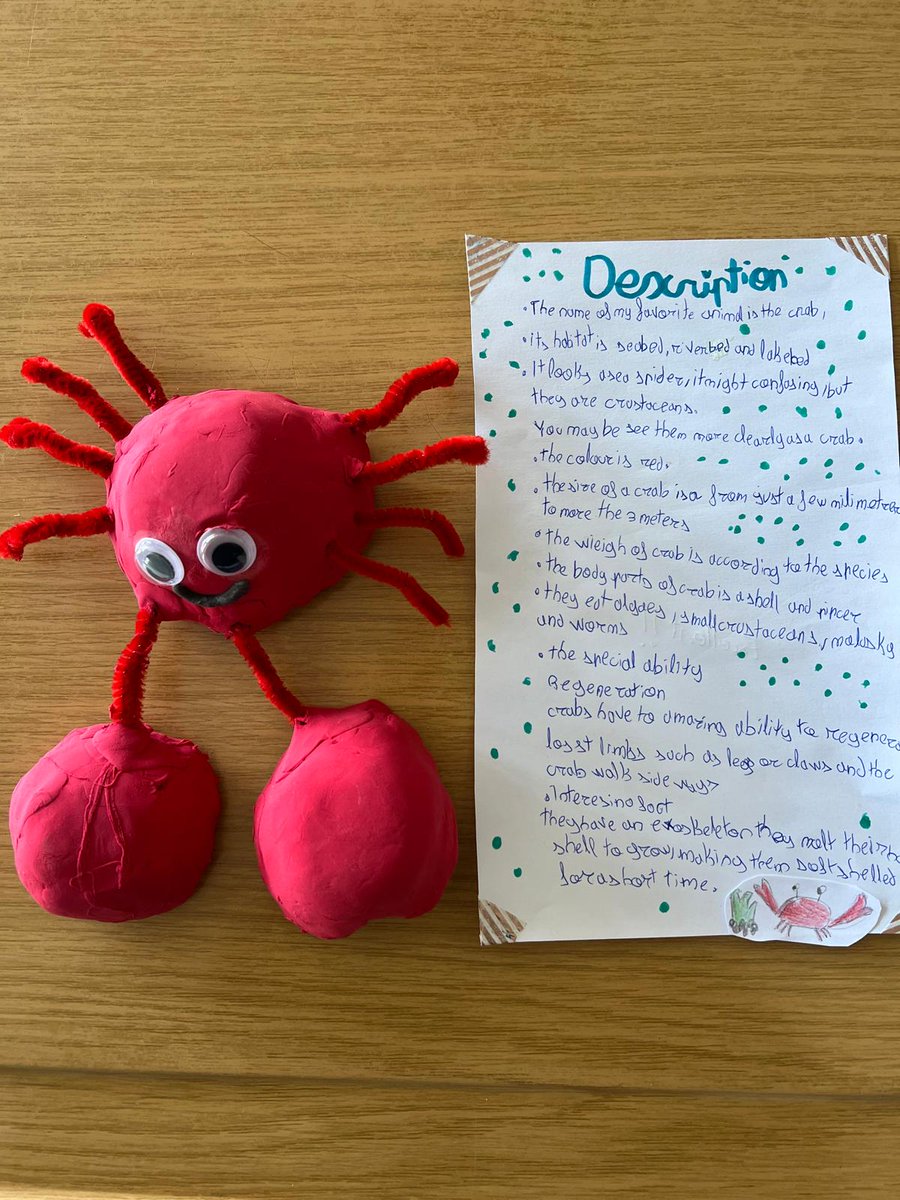 Description
• The name of my favorite animal is the crab,
• its habitat is seabed, riverbed and lakebed
• It looks as a spider, it might confusing, but
they are crustaceans.
You may be see them more clearly as a crab.
• the colour is red.
• the size of a crab is a from just a few milimetre
to more the 3 meters
• the wieigh of crab is according to the species
• the body parts of crab is a shell and pincer
• they eat algaes, small crustaceans, molasky
and worms
• the special ability
Regeneration
crabs have to amazing ability to regenera
losst limbs such as legs or claws and the
crab walk side ways
• Interesino fact
they have an exoskeleton they molt their ha
shell to grow, making them soft shelled
for a short time.